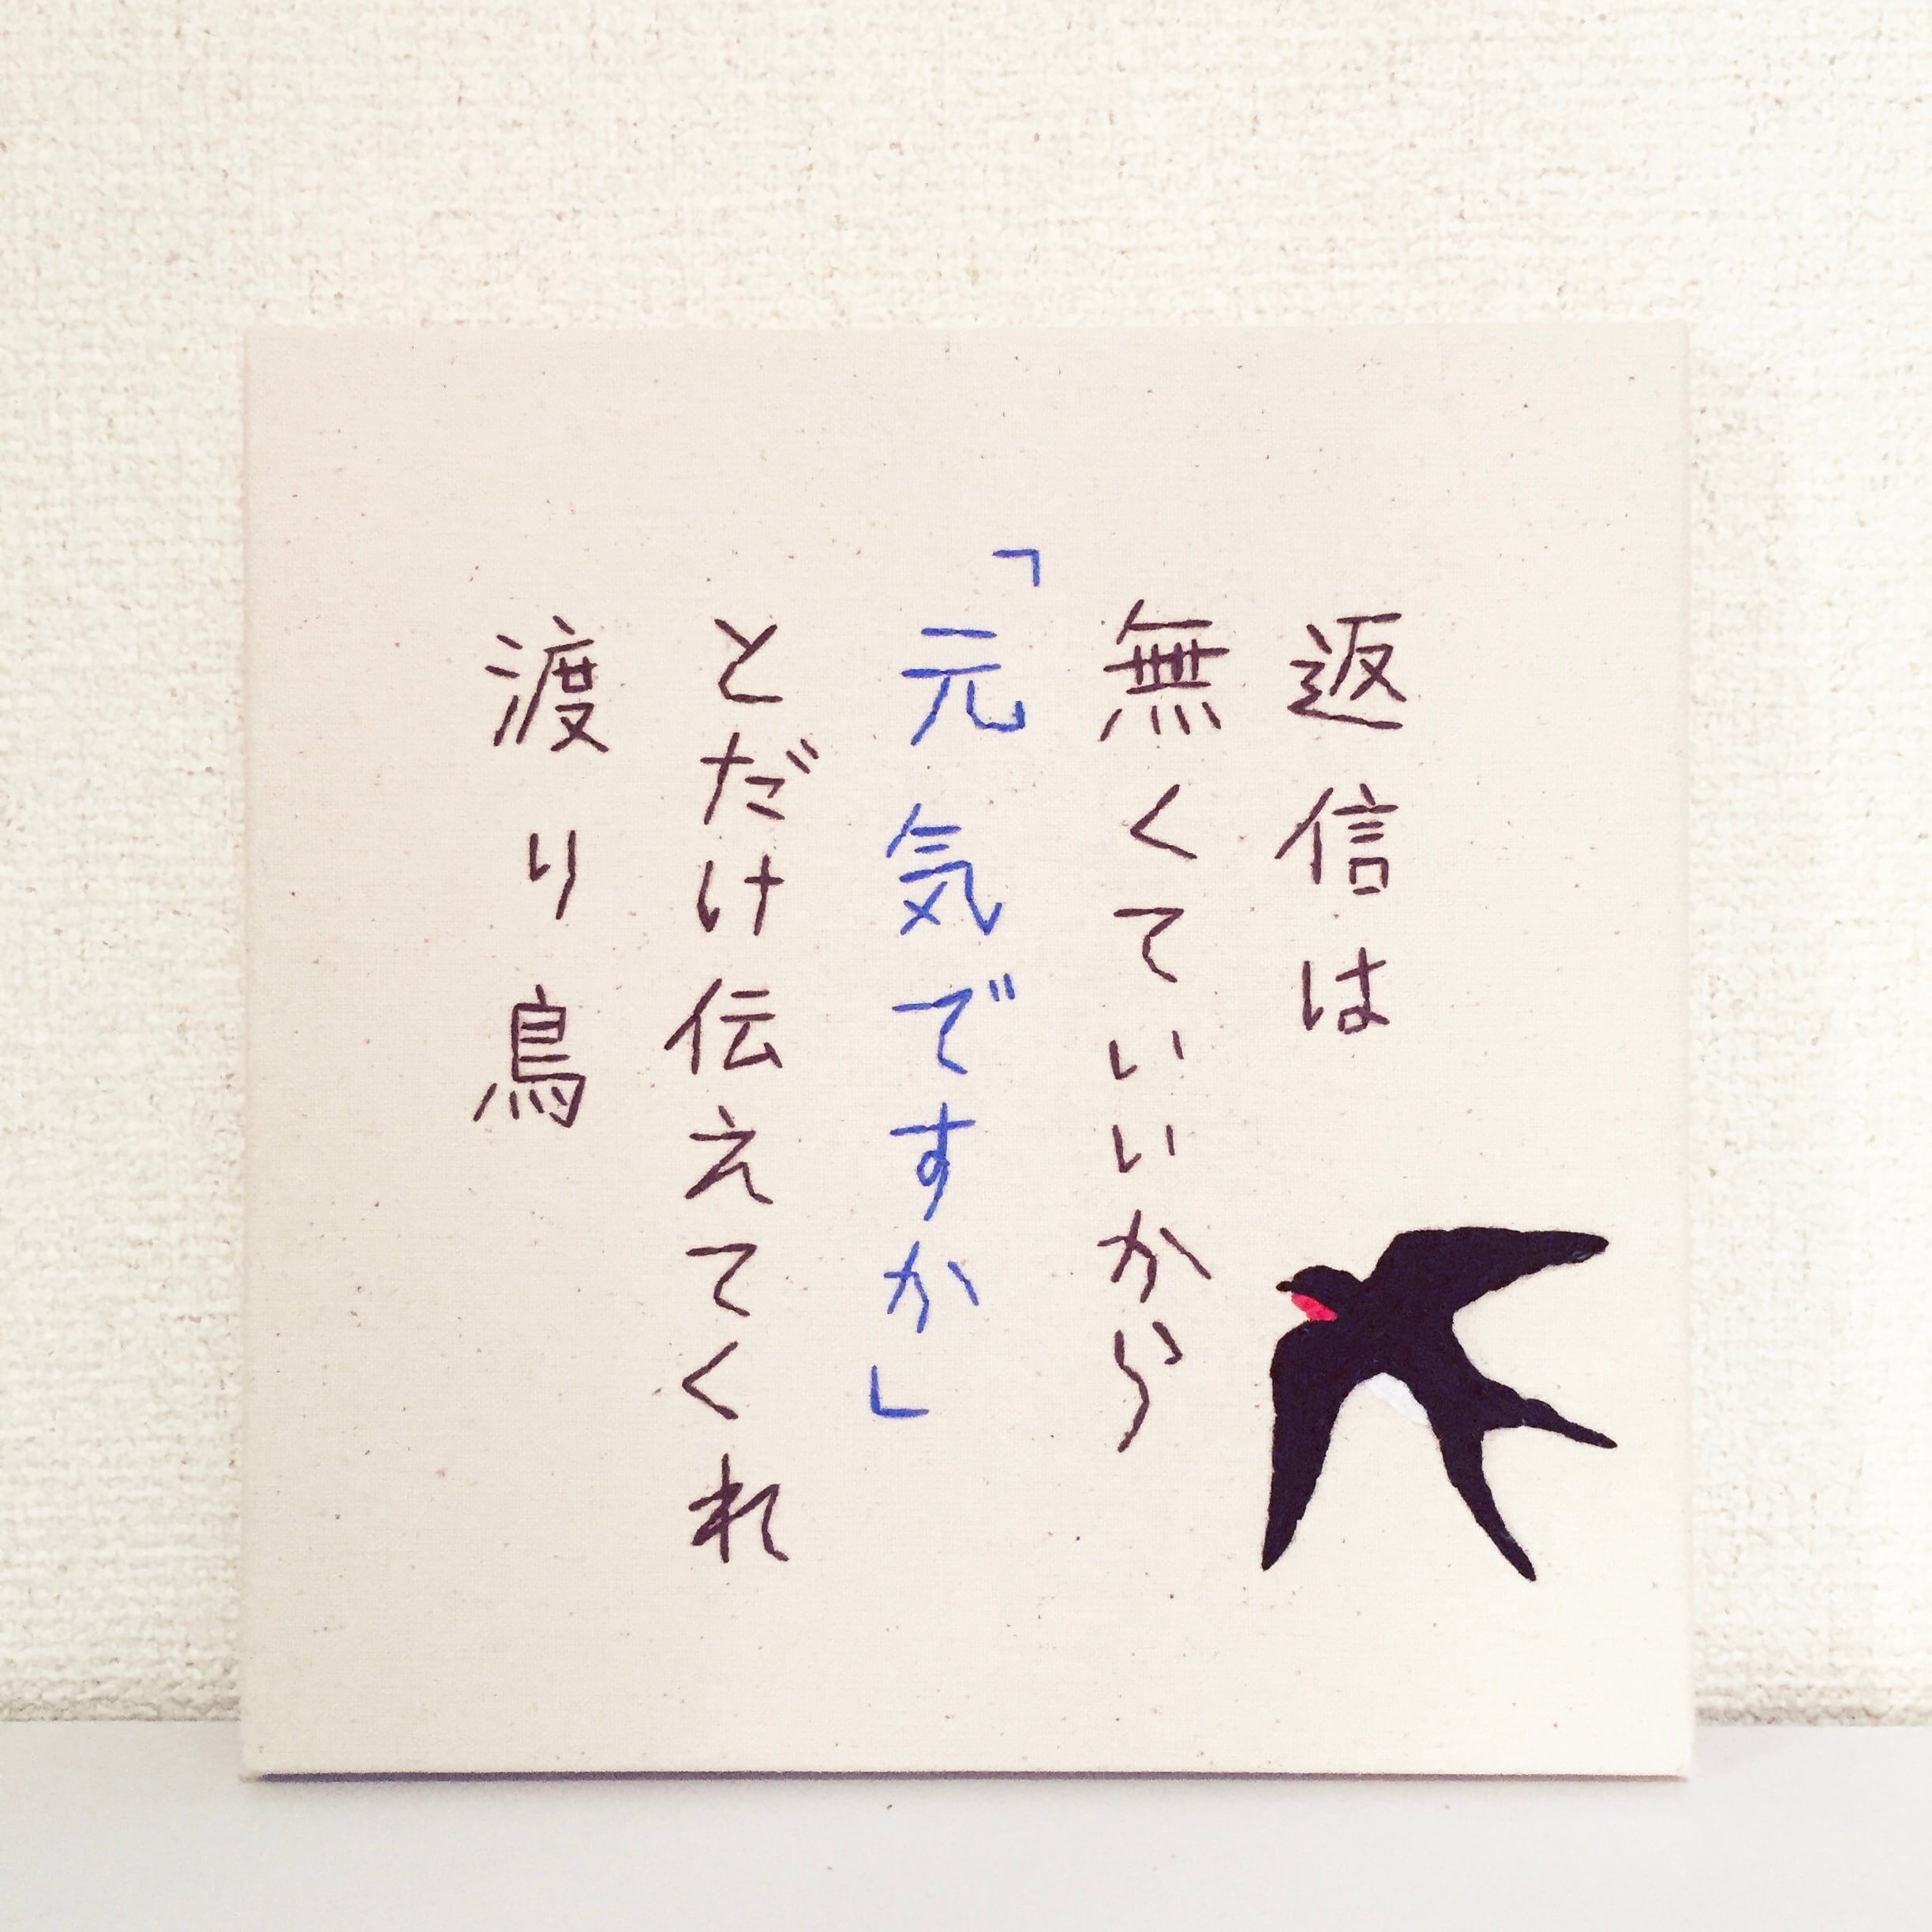 返信は
無くていいから
「元気ですか」
とだけ伝えてくれ
渡り鳥